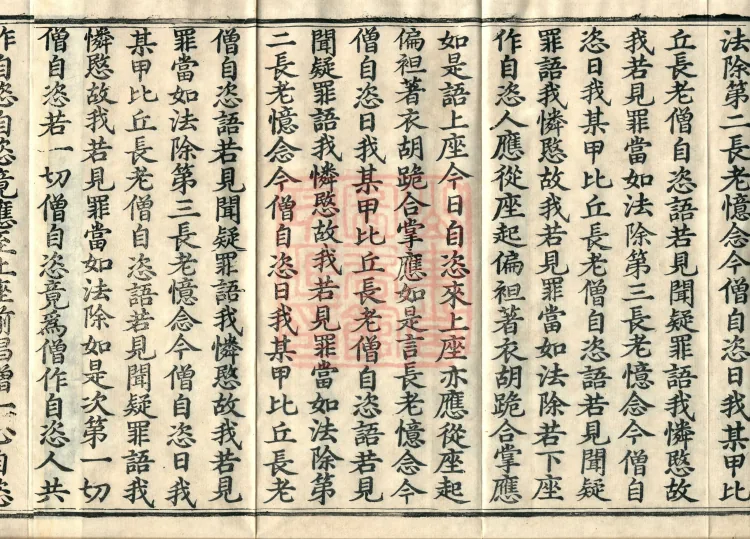 法除第二長老憶念今僧自恣日我某甲比
丘長老僧自恣語若見聞疑罪語我憐愍故
我若見罪當如法除第三長老憶念今僧自
恣日我某甲比丘長老僧自恣語若見聞疑
罪語我憐愍故我若見罪當如法除若下座
作自恣人應從座起偏袒著衣胡跪合掌應
如是語上座今日自恣來上座亦應從座起
偏袒著衣胡跪合掌應如是言長老憶念今
僧自恣日我某甲比丘長老僧自恣語若見
聞疑罪語我憐愍故我若見罪當如法除第
二長老憶念今僧自恣日我某甲比丘長老
僧自恣語若見聞疑罪語我憐愍故我若見
罪當如法除第三長老憶念今僧自恣日我
某甲比丘長老僧自恣語若見聞疑罪語我
憐愍故我若見罪當如法除如是次第一切
僧自恣若一切僧自恣竟為僧作自恣人共
作自恣自恣竟應至上座前唱僧一心自恣